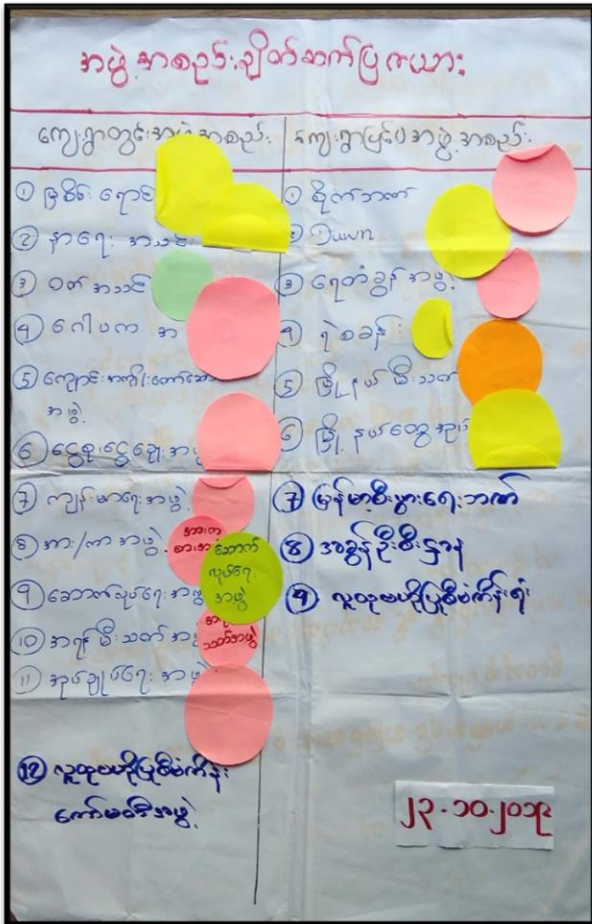 အဖွဲ့အစည်းချိတ်ဆက်ပြဇယား
ကျေးရွာတွင်းအဖွဲ့အစည်း
① မြစိမ်းရောင်
② နာရေးအသင်း
③ ဝတ်အသင်း
④ ဂေါပက အ
⑤ ကျောင်းအကျိုးတော်ဆောင်
အဖွဲ့
⑥ ငွေစုငွေချေးအဖွဲ့
⑦ ကျန်းမာရေးအဖွဲ့
⑧ အား/ကာ အဖွဲ့
⑨ ဆောက်လုပ်ရေးအဖွဲ့
⑩ အရန်မီးသတ်အ
⑪ အုပ်ချုပ်ရေးအဖွဲ့
⑫ လူထုဗဟိုပြုစီမံကိန်း
ကော်မတီအဖွဲ့
ဆောက်
လုပ်ရေး
အဖွဲ့
သတ်အဖွဲ့
ကျေးရွာပြင်ပအဖွဲ့အစည်း
① စိုက်ဘဏ်
②
③ ရေတံခွန်အဖွဲ့
④ ရဲစခန်း
⑤ မြို့နယ်မီးသတ်
⑥ မြို့နယ်ထွေအုပ်
⑦ မြန်မာ့စီးပွားရေးဘဏ်
⑧ အခွန်ဦးစီးဌာန
⑨ လူထုဗဟိုပြုစီမံကိန်းရုံး
၂၃.၁၀.၂၀၁၉